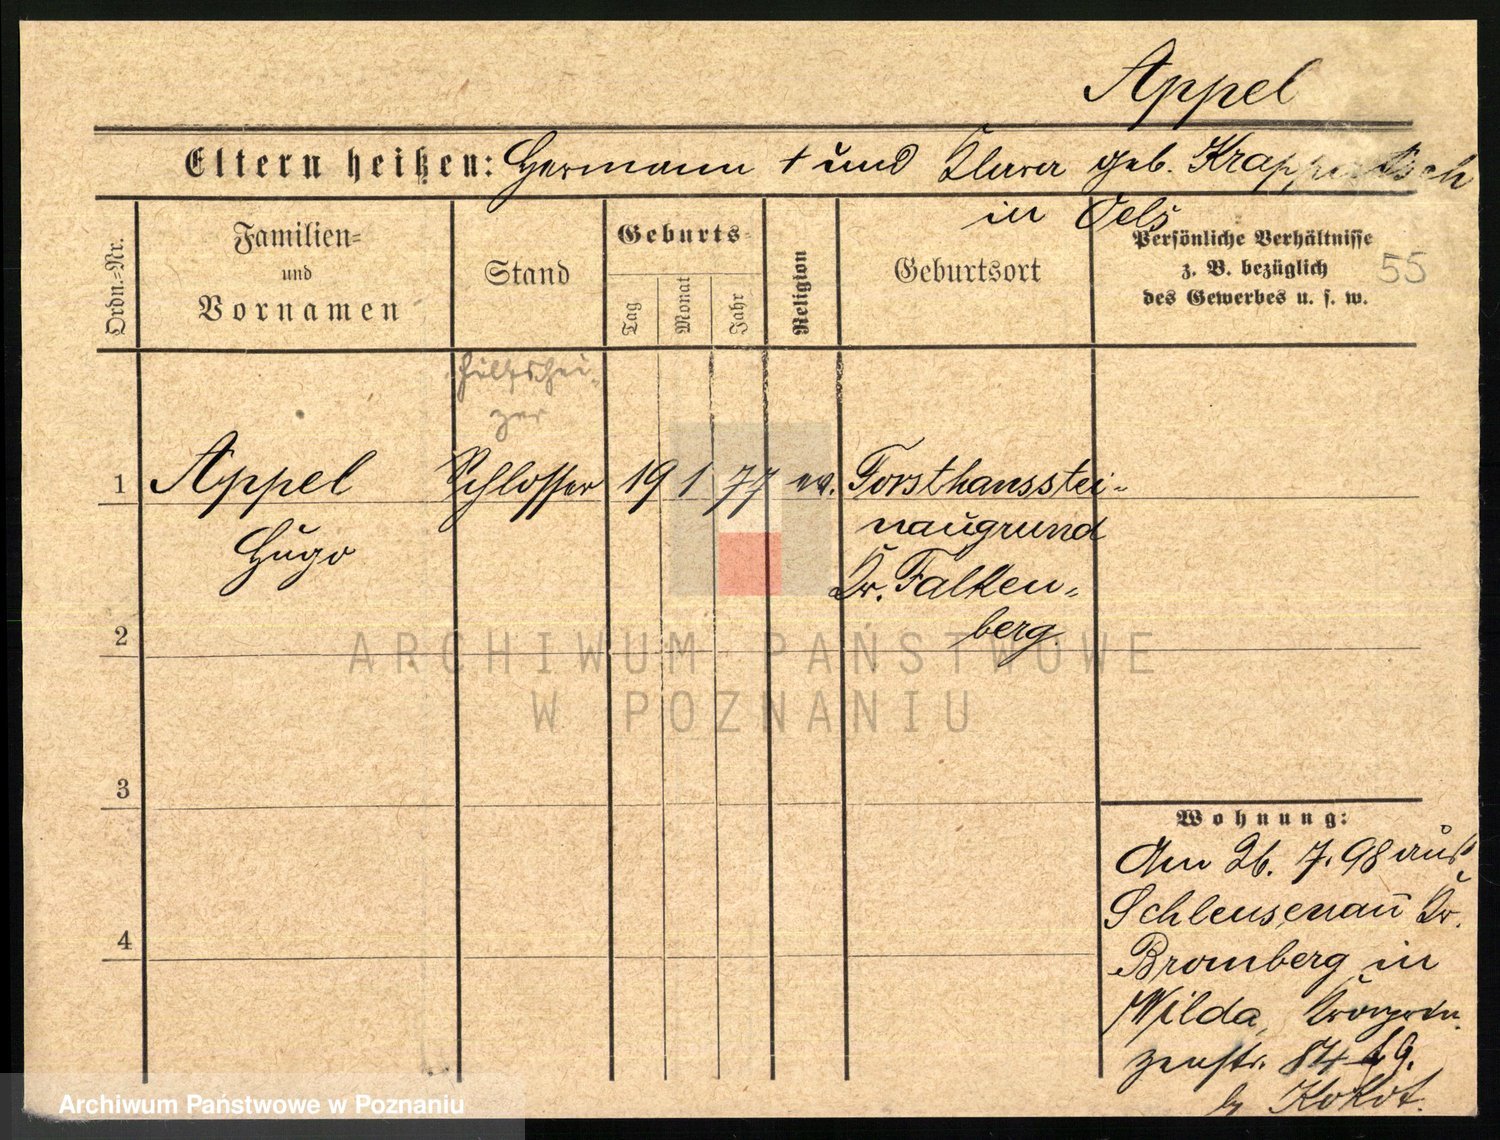 Appel
Eltern heißen: Hermann † und Klara geb. Krappatsch
in Oels
Ordn.=Nr.
Familien=
und
Vornamen
Stand
Geburts=
Tag
Monat
Jahr
Religion
Geburtsort
Persönliche Verhältnisse
z. B. bezüglich
des Gewerbes u. s. w.
55
Hilfshei-
zer
1 Appel Schlosser 19 1 77 ev. Forsthausstei-
Hugo naugrund
Kr. Falken-
2 berg
ARCHIWUM PAŃSTWOWE
W POZNANIU
3
Wohnung:
Am 26. 7. 98 aus
Schleusenau Kr.
4 Bromberg in
Wilda, Kronprin-
zenstr. 84
b Kokot.
Archiwum Państwowe w Poznaniu